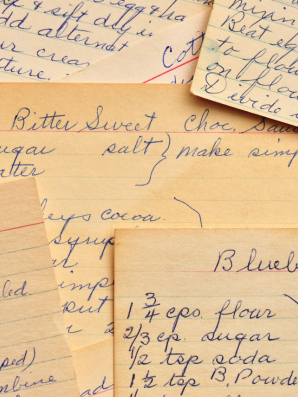 & sift dry in
add alternat
ur crea
ture.
Cott
Beat eg
to flou
on flou
Divide i
Bitter Sweet Choc. Sauc
ugar salt } make simp
ater
eys cocoa.
syrup
ar
imp
put
r 2
led.
ped)
mbine
ad
Blueb
1 3/4 cps. flour
2/3 cp. sugar
1/2 tsp soda
1 1/2 tsp B. Powde